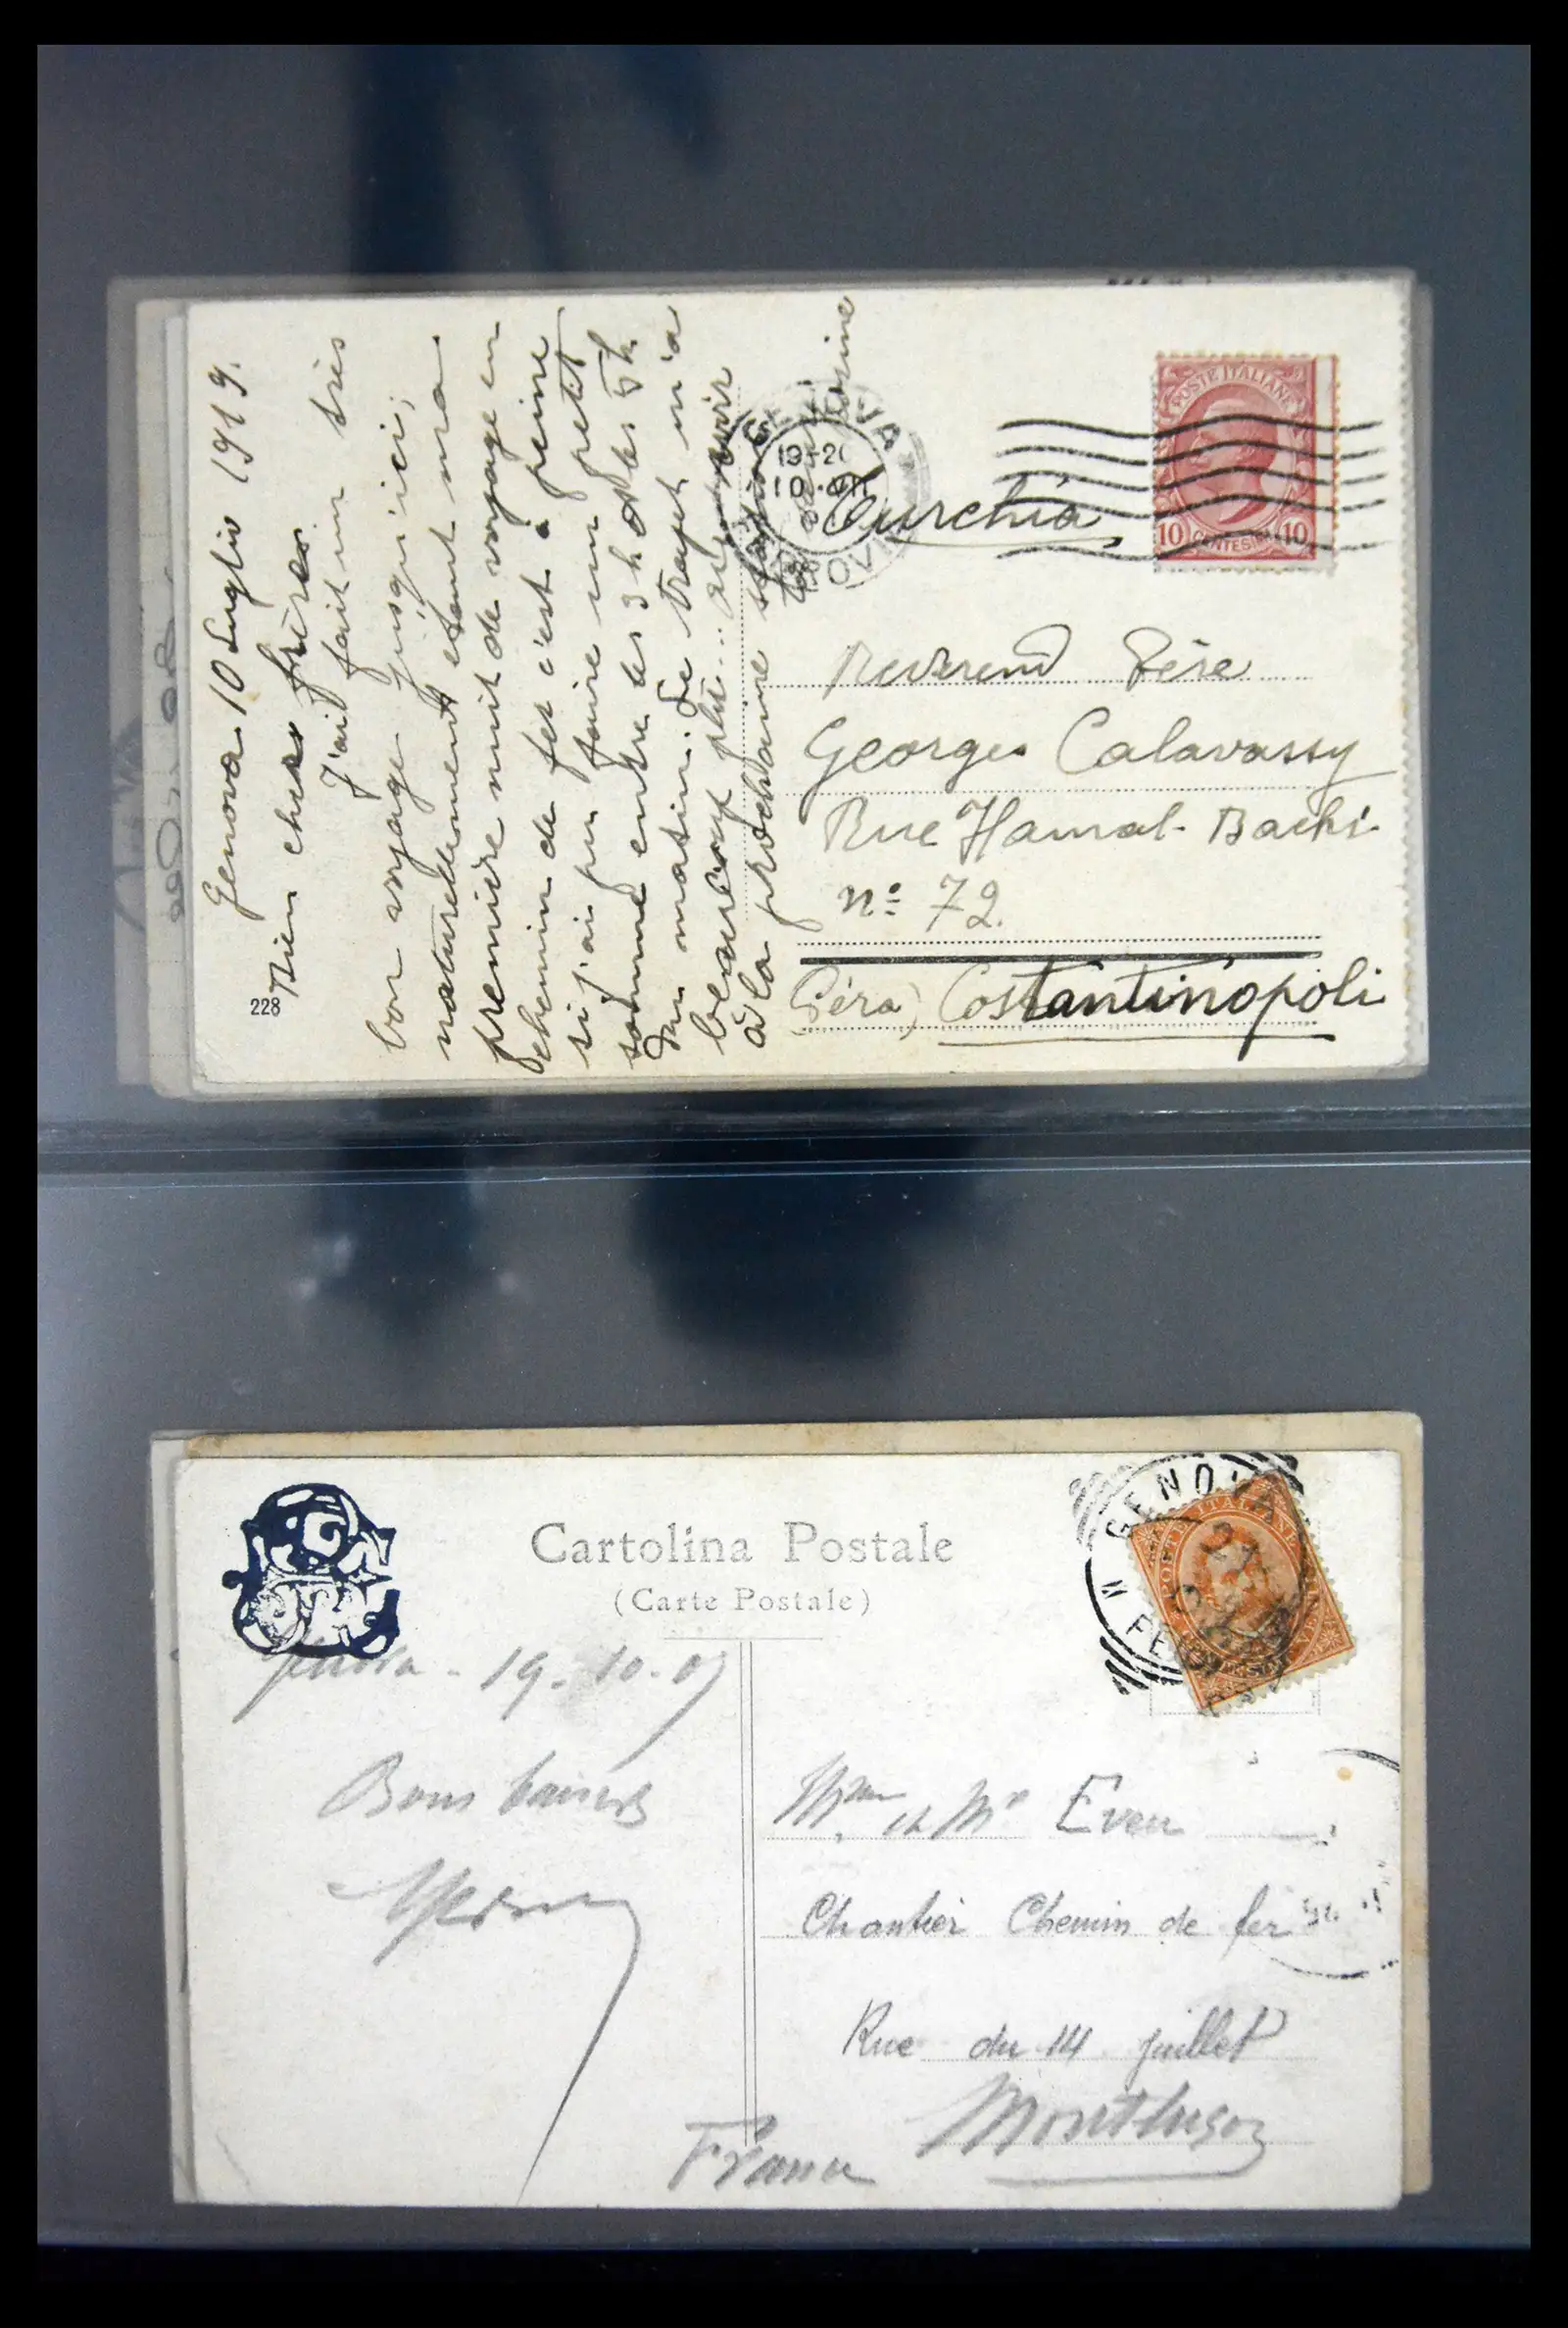 Genova 10 Luglio 1919.
Bien chers frères
J'ai fait un très
bon voyage jusqu'ici;
naturellement étant ma
première nuit de voyage en
chemin de fer c'est à peine
si j'ai pu faire un petit
somme entre les 3 h et les 5 h
du matin. Le trajet m'a
beaucoup plu...
à la prochaine station
GENOVA
19-20
10 VII
FERROVIA
Turchia
POSTE ITALIANE
10 CENTESIMI 10
Reverend Père
Georges Calavassy
Rue Hamal-Bachi
no: 72.
(Péra) Costantinopoli
228
Cartolina Postale
(Carte Postale)
GENOVA
POSTE ITALIANE
Genova - 19-10-07
Bons baisers
Mme et Mr Even
Chantier Chemin de fer
Rue du 14 juillet
Montluçon
France